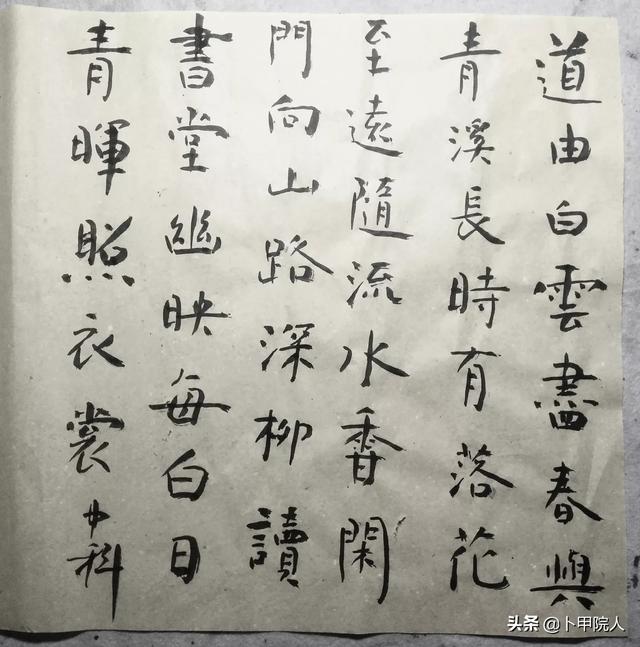 道由白雲盡春與
青溪長時有落花
至遠隨流水香閑
門向山路深柳讀
書堂幽映每白日
青暉照衣裳中科
头条 @卜甲院人